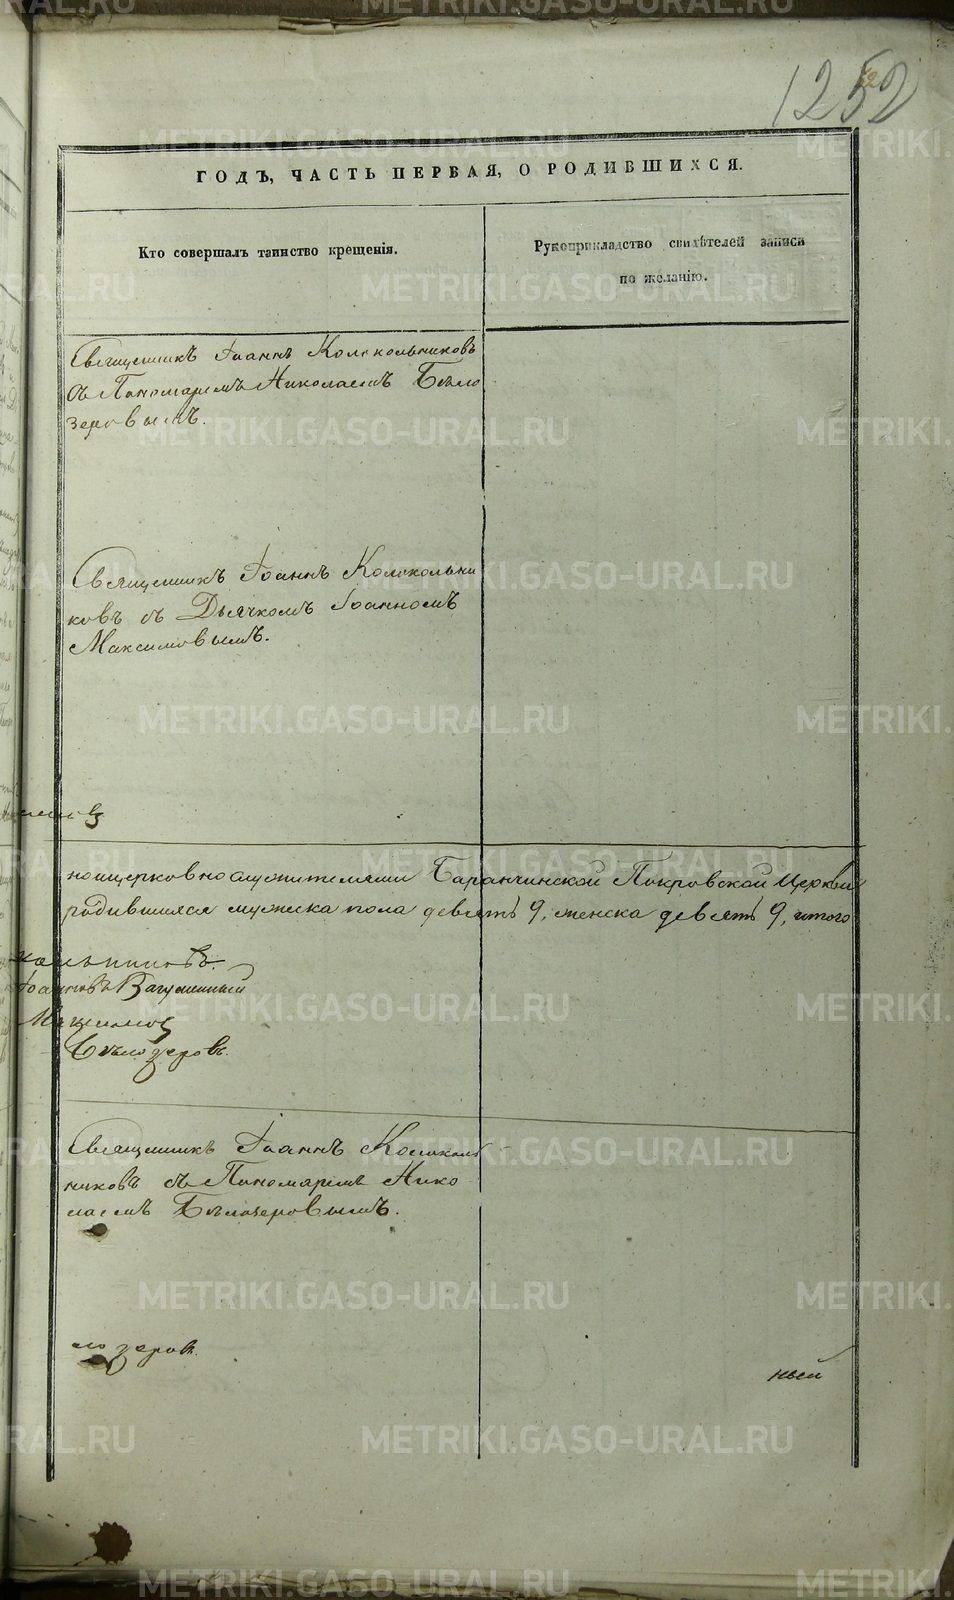 1252
ГОДЪ, ЧАСТЬ ПЕРВАЯ, О РОДИВШИХСЯ.
Кто совершалъ таинство крещенія.
Рукоприкладство свидѣтелей записи
по желанію.
Священникъ Іоаннъ Колокольниковъ
съ Пономаремъ Николаемъ Бѣло
зеровымъ.
Священникъ Іоаннъ Колокольни
ковъ съ Дьячкомъ Іоанномъ
Максимовымъ.
ноицерковнослужителями Баранчинской Покровской Церкви
родившихся мужеска пола девять 9, женска девять 9, итого
кольниковъ.
Іоанновъ
Максимовъ
Бѣлозеровъ.
Священникъ Іоаннъ Колоколь
никовъ съ Пономаремъ Нико
лаемъ Бѣлозеровымъ.
лозеровъ.
ный
METRIKI.GASO-URAL.RU